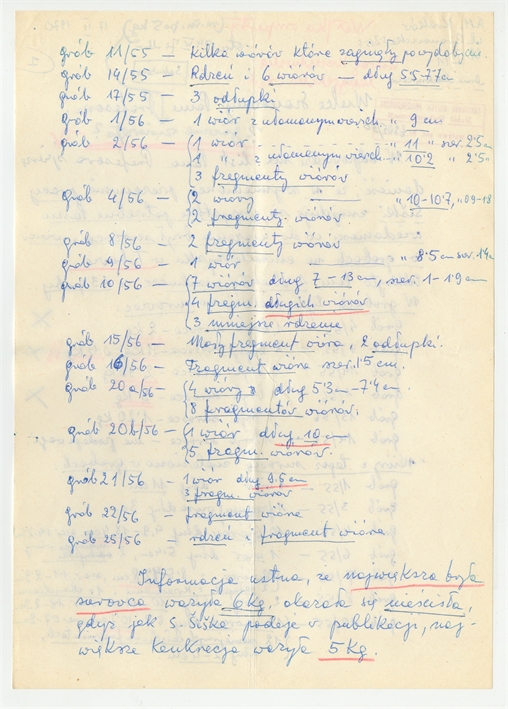 grób 11/55 — Kilka wiórów które zaginęły powojdobjcin.
grób 14/55 — Rdzeń i 6 wiórów — dług 5.5-7.7 cm
grób 17/55 — 3 odłupki
grób 1/56 — 1 wiór z ułamanym wierzch. " 9 cm
grób 2/56 — 1 wiór ............ " 11 " szer. 2.5 cm
1 " z ułamanym wierzch. " 10.2 " 2.5 "
3 fragmenty wiórów
grób 4/56 — 2 wióry —— " 10-10.7, " 0.9-1.8
2 fragmenty wiórów
grób 8/56 — 2 fragmenty wiórów
grób 9/56 — 1 wiór " 8.5 cm szer. 1.4 cm
grób 10/56 — 7 wiórów dług 7-13 cm, szer. 1-1.9 cm
4 fragm. długich wiórów
3 mniejsze rdzenie
grób 15/56 — Mały fragment wióra, 2 odłupki.
grób 16/56 — Fragment wióra szer. 1.5 cm.
grób 20a/56 — 4 wióry dług 5.3 cm - 7.4 cm.
8 fragmentów wiórów.
grób 20b/56 — 1 wiór dług. 10 cm
5 fragm. wiórów.
grób 21/56 — 1 wiór dług 9.5 cm
3 fragm. wiórów
grób 22/56 — fragment wióra
grób 25/56 — rdzeń i fragment wióra
Informacja ustna, że największa bryła
surowca ważyła 6 kg, okazała się nieścisła,
gdyż jak S. Šiška podaje w publikacji, naj-
większa konkrecja ważyła 5 kg.